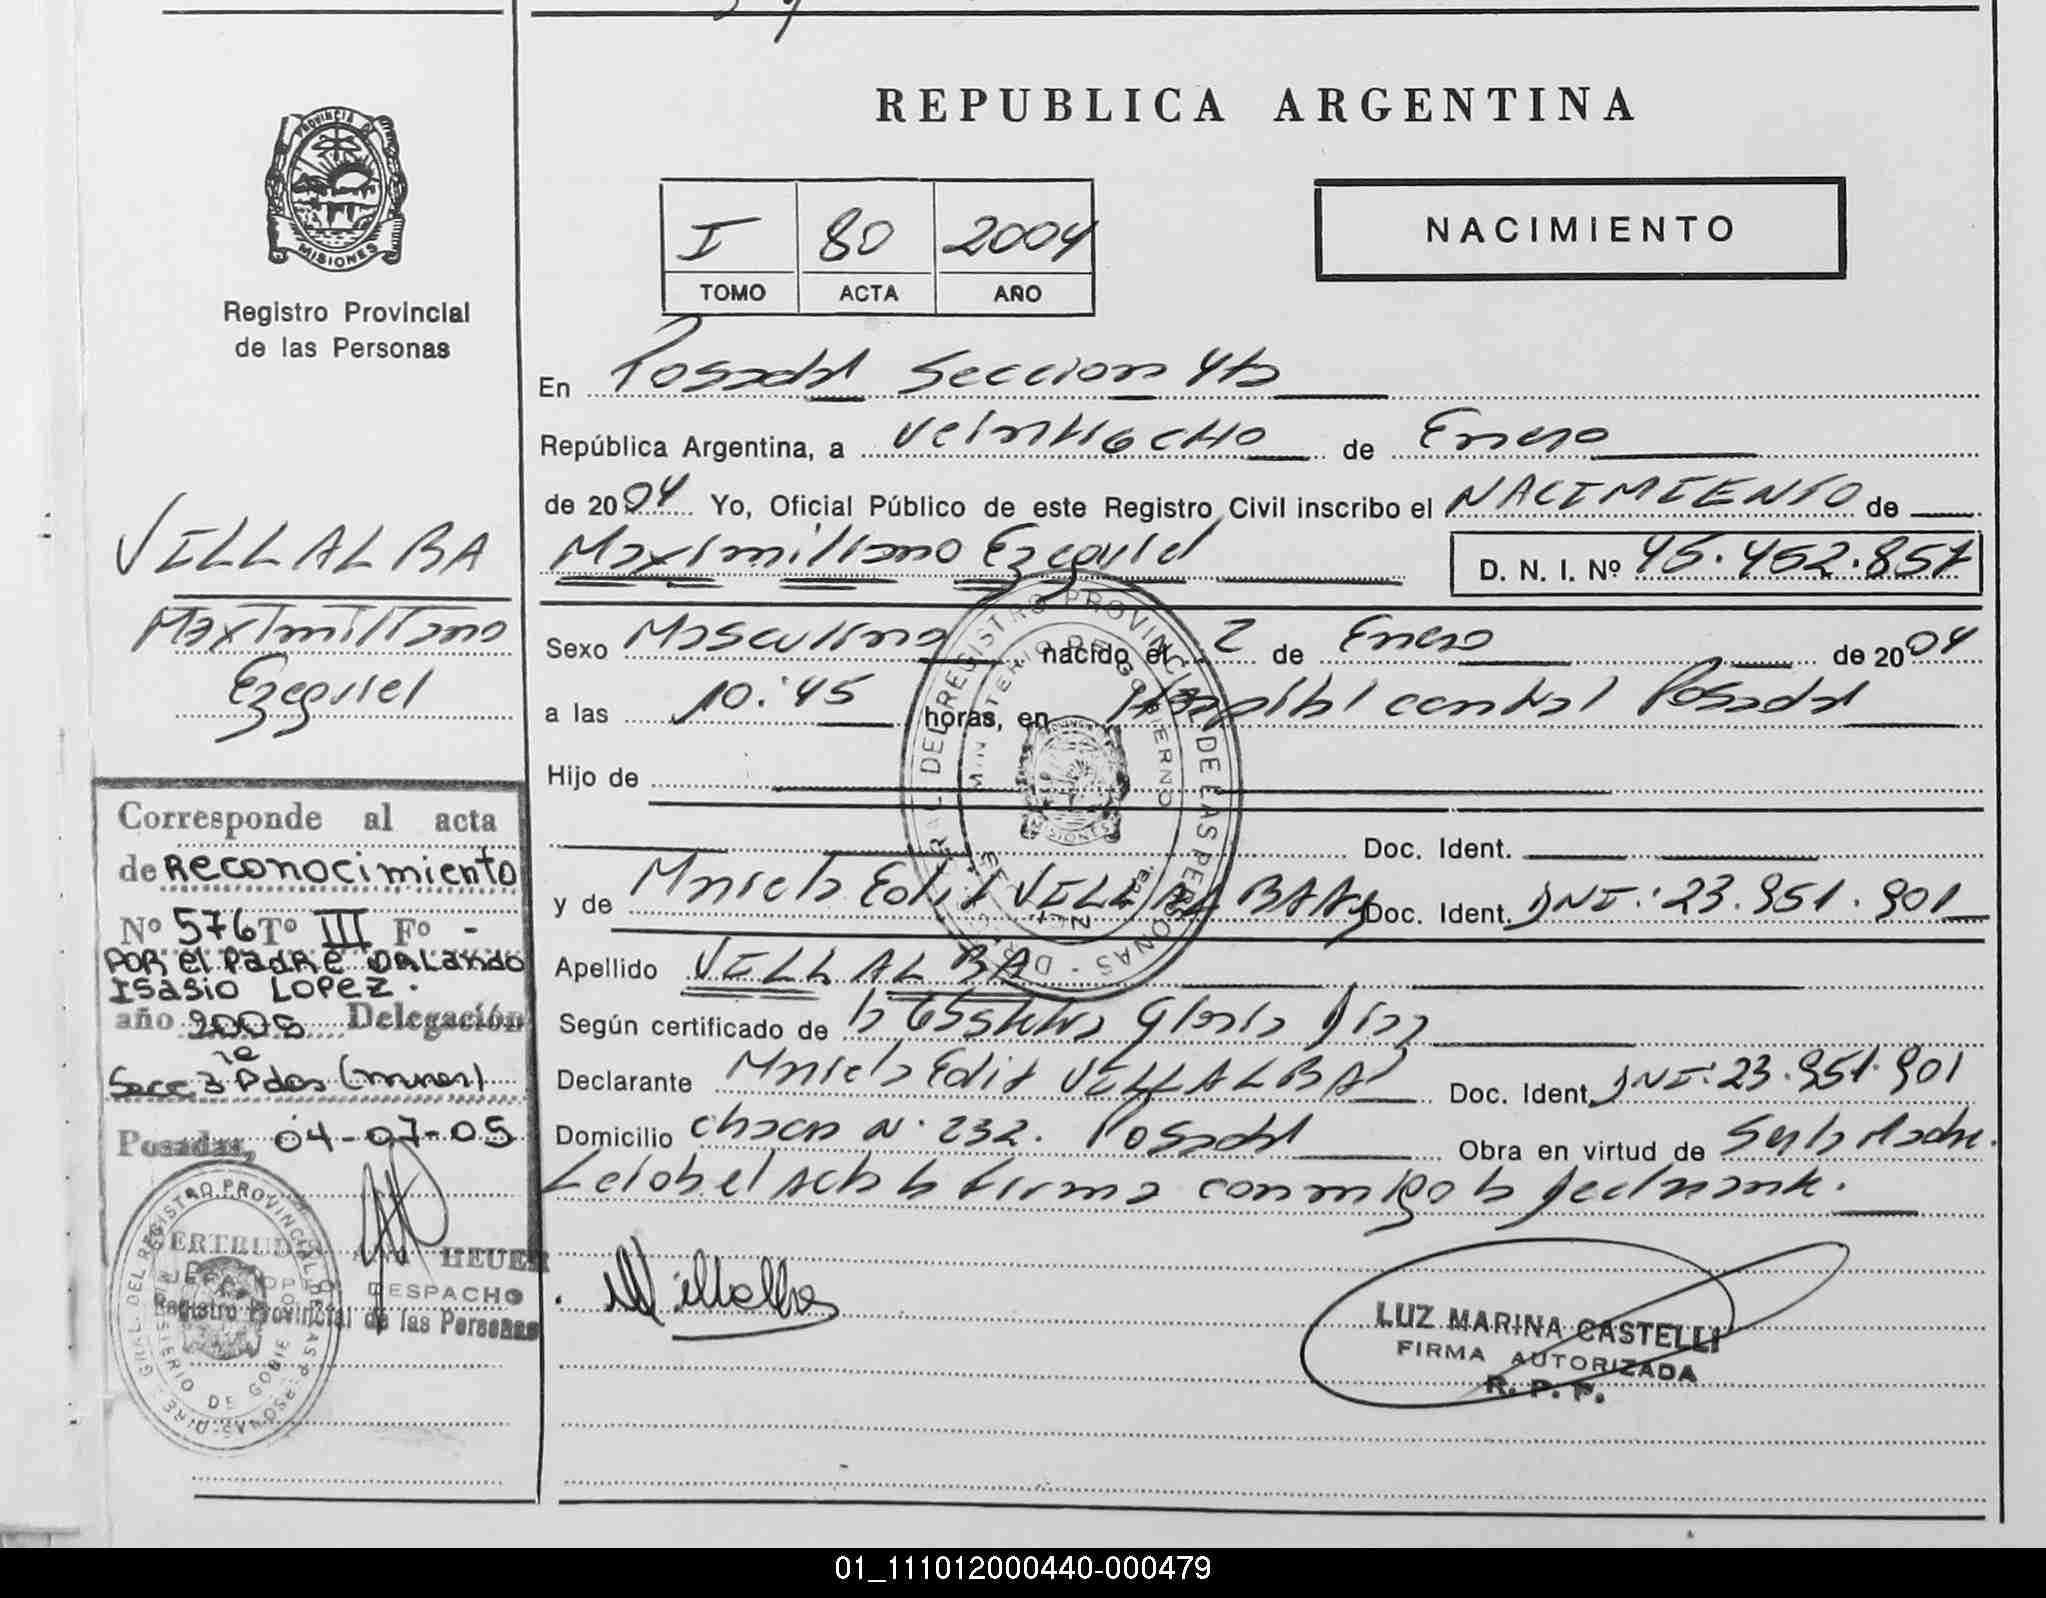 REPUBLICA ARGENTINA
PROVINCIA DE
MISIONES
Registro Provincial
de las Personas
I 80 2004
TOMO ACTA AÑO
NACIMIENTO
En Posadas Seccion 4ta
República Argentina, a veintiocho de Enero
de 2004 Yo, Oficial Público de este Registro Civil inscribo el NACIMIENTO de
Maximiliano Ezequiel D. N. I. Nº 45.452.857
Sexo Masculino nacido el 2 de Enero de 2004
a las 10:45 horas, en Hospital central Posadas
Hijo de
Doc. Ident.
y de Mariela Edit VILLALBA Doc. Ident. DNI: 23.951.901
Apellido VILLALBA
Según certificado de la Obstetra Gloria Diaz
Declarante Mariela Edit VILLALBA Doc. Ident. DNI: 23.951.901
Domicilio chacra N. 232. Posadas Obra en virtud de Ser la Madre.
Leida el acta la firma conmigo la declarante.
MVillalba
LUZ MARINA CASTELLI
FIRMA AUTORIZADA
R. P. P.
VILLALBA
Maximiliano
Ezequiel
Corresponde al acta
de Reconocimiento
Nº 576 Tº III Fº -
POR el Padre ORLANDO
ISASIO LOPEZ.
año 2005 Delegación
Secc 3ra Pdas
Posadas, 04-07-05
HEUER
DESPACHO
Registro Provincial de las Personas
01_111012000440-000479